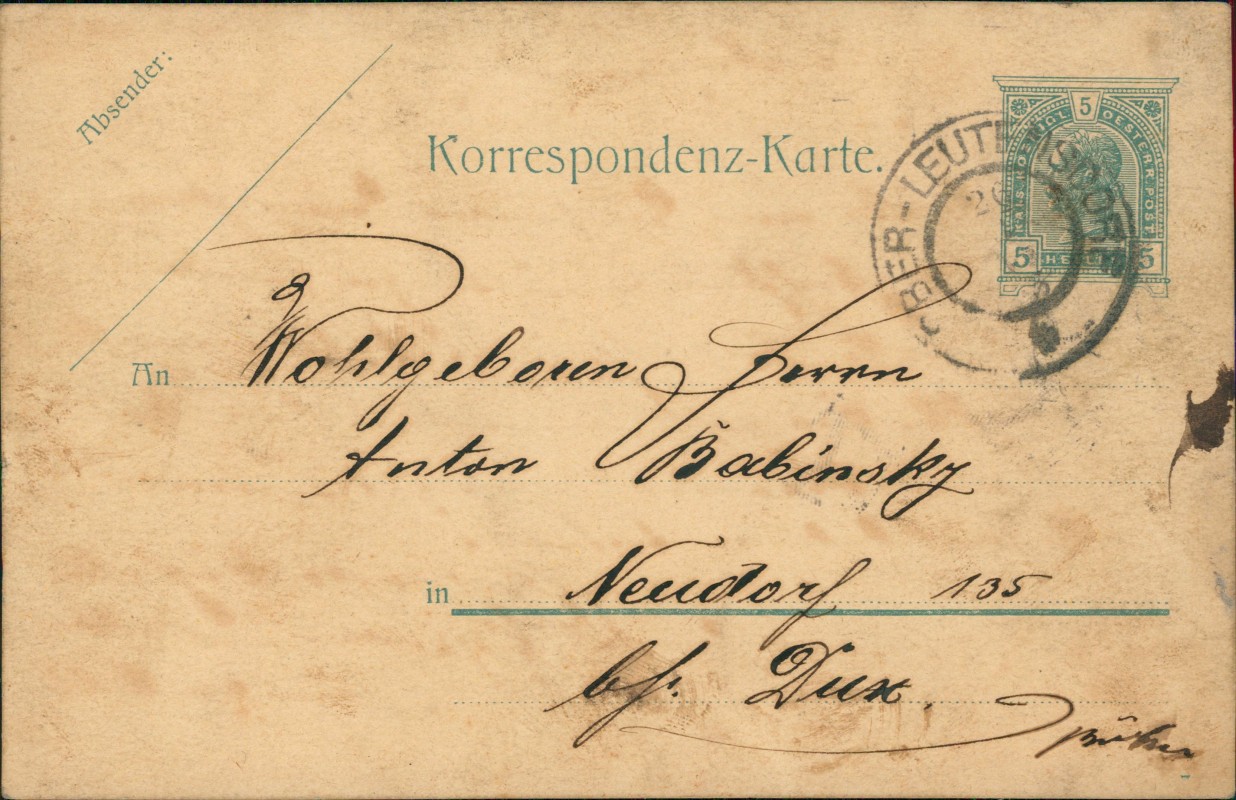 Absender:
Korrespondenz-Karte.
5
KAIS. KÖNIGL. OESTERR. POST
5 HELLER 5
OBER-LEUTENSDORF
26
An Wohlgeboren Herrn
Anton Babinsky
in Neudorf 135
bß. Dux.
Böhm